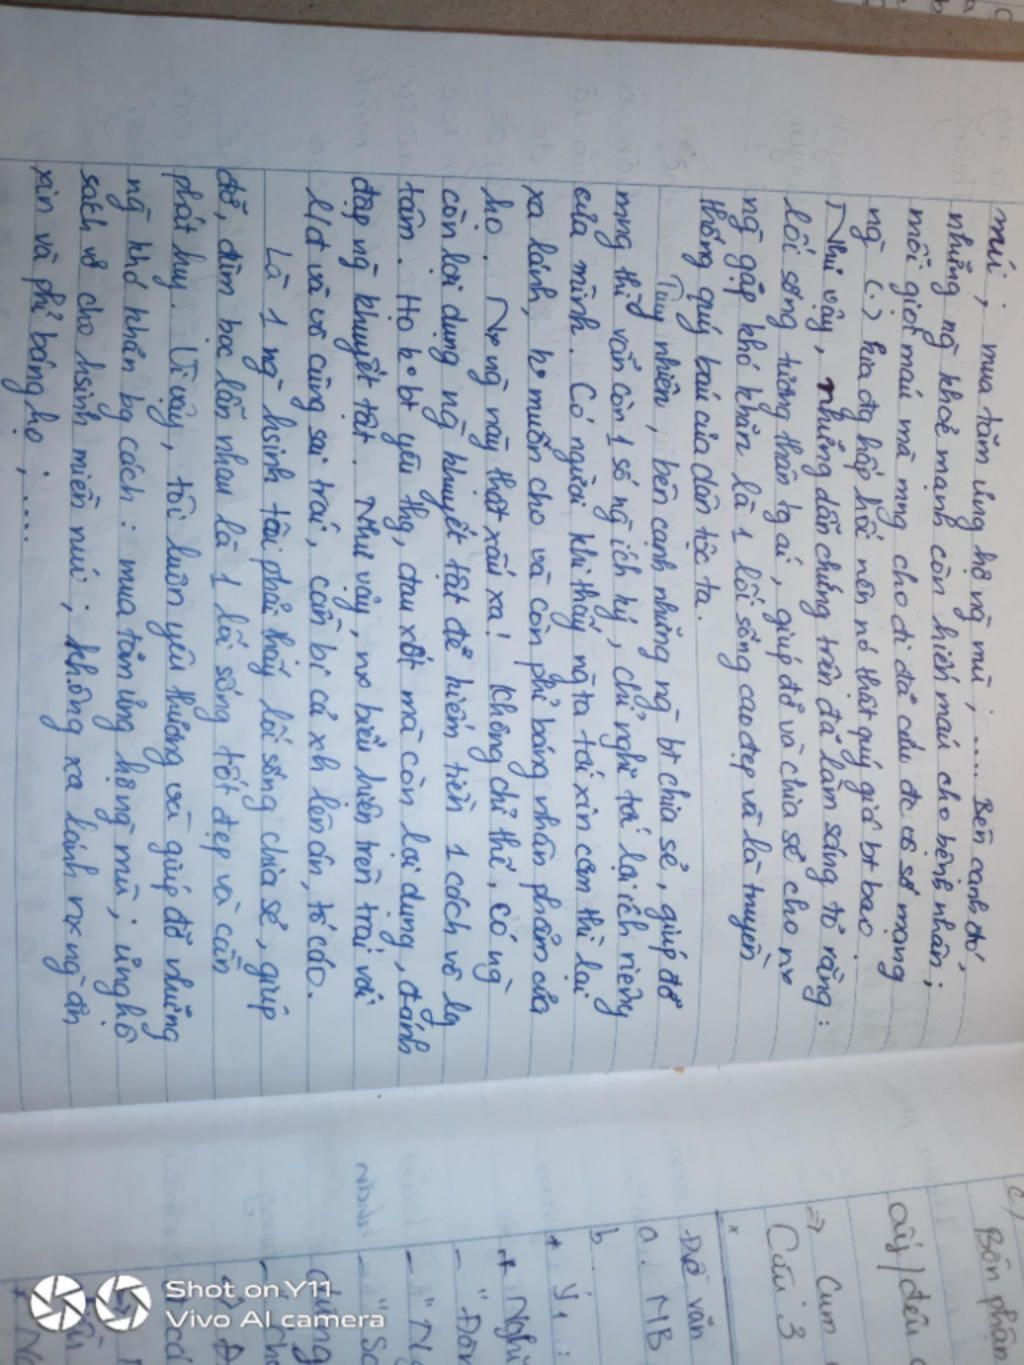 núi ; mua tăm ủng hộ ng mù ; ..... Bên cạnh đó,
những ng khoẻ mạnh còn hiến máu cho bệnh nhân ;
mỗi giọt máu mà mng cho đi đã cứu đc vô số mạng
ng (.) kia đg hấp hối nên nó thật quý giá bt bao
Như vậy, những dẫn chứng trên đã làm sáng tỏ rằng :
lối sống tương thân tg ái, giúp đỡ và chia sẻ cho nx
ng gặp khó khăn là 1 lối sống cao đẹp và là truyền
thống quý báu của dân tộc ta.
Tuy nhiên, bên cạnh những ng bt chia sẻ, giúp đỡ
mng thì vẫn còn 1 số ng ích kỷ, chỉ nghĩ tới lợi ích riêng
của mình. Có người khi thấy ng ta tới xin cơm thì lại
xa lánh, ko muốn cho và còn phỉ báng nhân phẩm của
họ. Nx ng này thật xấu xa! Không chỉ thế, có ng
còn lợi dụng ng khuyết tật để kiếm tiền 1 cách vô lg
tâm. Họ ko bt yêu thg, đau xót mà còn lợi dụng, đánh
đập ng khuyết tật. Như vậy, nx biểu hiện trên trái với
lđ và vô cùng sai trái, cần bị cả xh lên án, tố cáo.
Là 1 ng hsinh tôi phải thấy lối sống chia sẻ, giúp
đỡ, đùm bọc lẫn nhau là 1 lối sống tốt đẹp và cần
phát huy. Vì vậy, tôi luôn yêu thương và giúp đỡ những
ng khó khăn bg cách : mua tăm ủng hộ ng mù ; ủng hộ
sách vở cho hsinh miền núi ; không xa lánh nx ng ăn
xin và phỉ báng họ ; ....
c)
Bổn phận
cây / đều
⇒ Cụm
Câu 3
Đề văn
a. MB
b.
+ Ý1 :
+ Nghĩ
- "Đàn
- "N
- "Sơ
Shot on Y11
Vivo AI camera